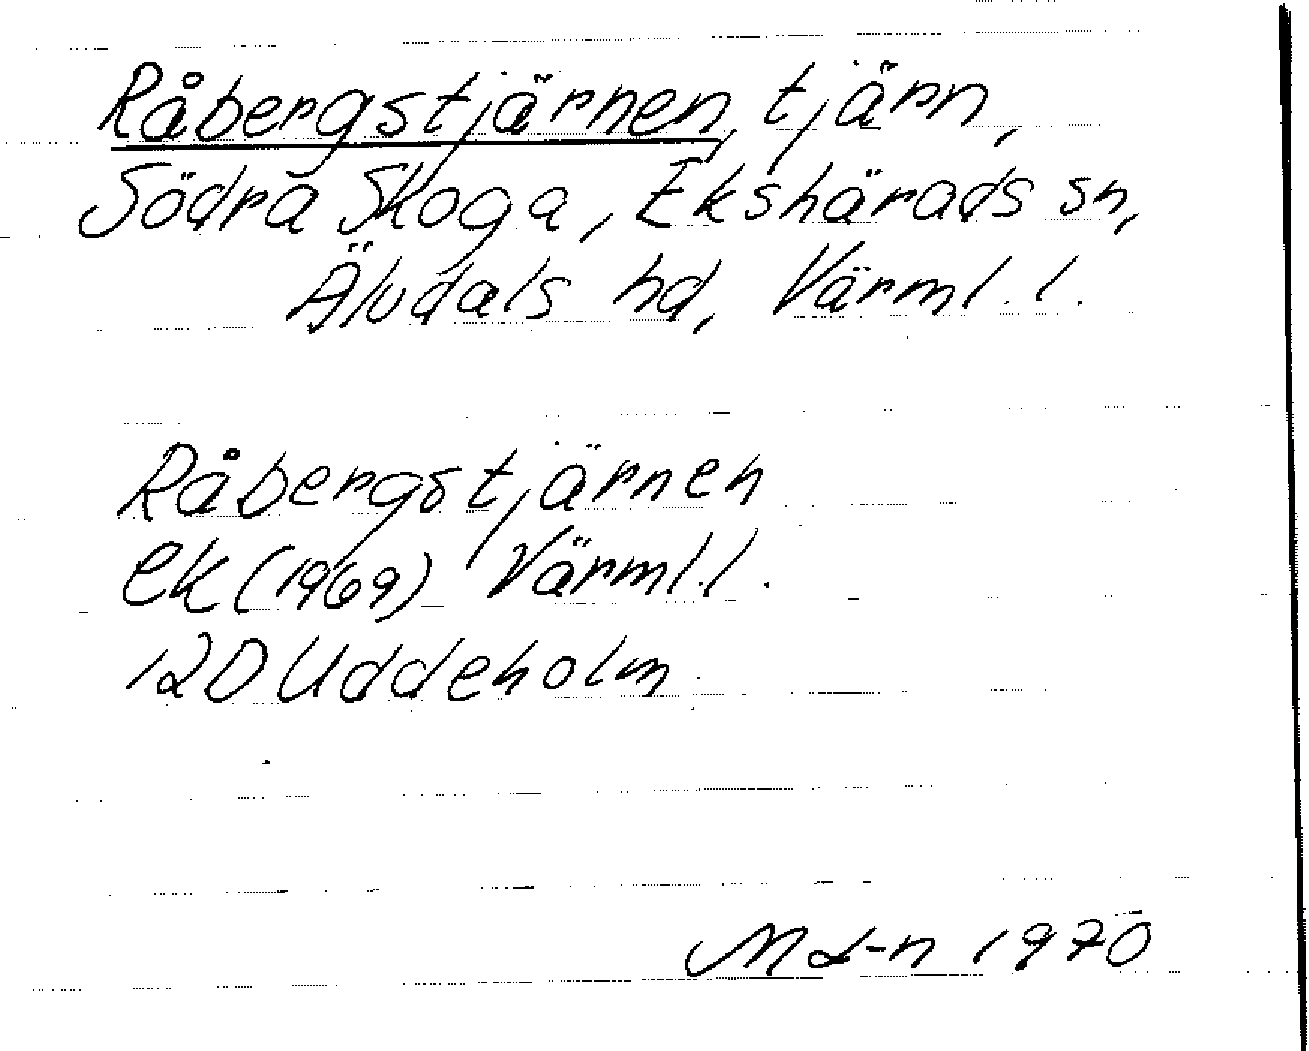 Råbergstjärnen, tjärn,
Södra Skoga, Ekshärads sn,
Älvdals hd, Värml. l.
Råbergstjärnen
ek (1969) Värml. l.
12D Uddeholm
1970